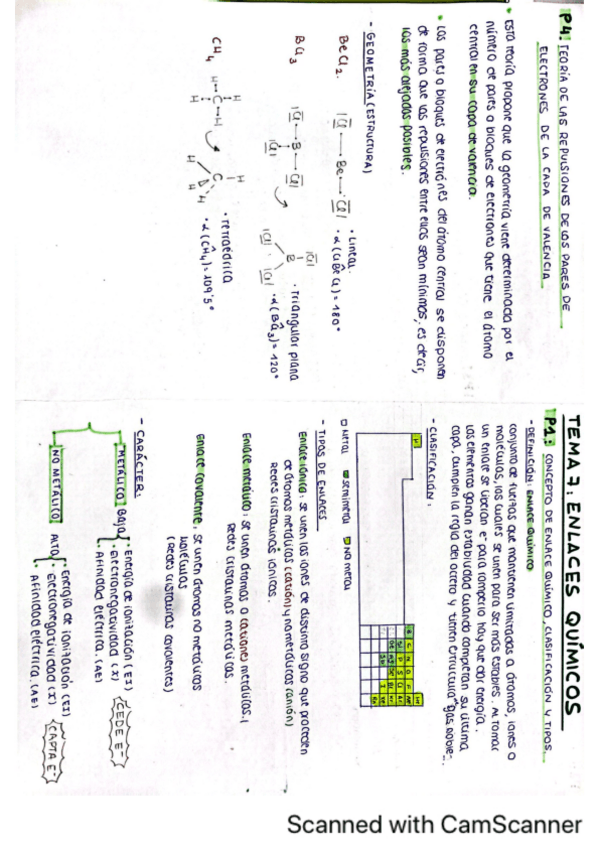 TEMA 7: ENLACES QUÍMICOS
P1: CONCEPTO DE ENLACE QUÍMICO, CLASIFICACIÓN Y TIPOS.
- DEFINICIÓN: ENLACE QUÍMICO
conjunto de fuerzas que mantienen unidos a átomos, iones o
moléculas, los cuales se unen para ser más estables. Al formar
un enlace se liberan e⁻ para romperlo hay que dar energía.
Los elementos ganan estabilidad cuando completan su última
capa, cumplen la regla del octeto y tienen estructura "gas noble".
- CLASIFICACIÓN:
H
He
B C N O F Ne
Si P S Cl Ar
□ METAL ■ semimetal □ NO metal
- TIPOS DE ENLACES
Enlace iónico: se unen los iones de distinto signo que proceden
de átomos metálicos (catión) y no metálicos (anión)
Redes cristalinas iónicas.
Enlace metálico: se unen átomos o cationes metálicos.
Redes cristalinas metálicas.
Enlace covalente: se unen átomos no metálicos
Moléculas
(Redes cristalinas covalentes)
- CARÁCTER:
METÁLICO Baja
· Energía de ionización (EI)
· Electronegatividad (X)
· Afinidad eléctrica. (AE)
CEDE E⁻
NO METÁLICO ALTO
· Energía de ionización (EI)
· Electronegatividad (X)
· Afinidad eléctrica. (AE)
CAPTA E⁻
P4: TEORÍA DE LAS REPULSIONES DE LOS PARES DE
ELECTRONES DE LA CAPA DE VALENCIA
• Esta teoría propone que la geometría viene determinada por el
número de pares o bloques de electrones que tiene el átomo
central en su capa de valencia.
• Los pares o bloques de electrones del átomo central se disponen
de forma que las repulsiones entre ellos sean mínimas, es decir,
los más alejados posibles.
- GEOMETRÍA (ESTRUCTURA)
BeCl₂. |Cl — Be — Cl|
· Lineal.
· α (ClBeCl) = 180°
BCl₃ |Cl — B — Cl|
|Cl|
B
|Cl| |Cl| |Cl|
· Triangular plana
· α (BCl₃) = 120°
CH₄
H
H — C — H
H
H
C
H H H
· Tetraédrica
· α (CH₄) = 109'5°
Scanned with CamScanner